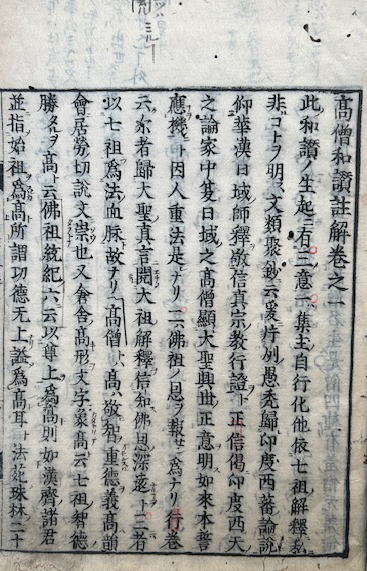 高僧和讃註解卷之一
此和讃ノ生起ニ有三意一集主自行化他依七祖解釋私
非コトヲ明ス文類聚鈔云爰片列愚禿歸印度西蕃論說
仰華漢日域師釋敬信真宗教行證ト正信偈印度西天
之論家中夏日域之高僧顯大聖興世正意明如來本誓
應機ト因人重法是ナリ二佛祖ノ恩ヲ報センカ爲ナリ行卷
云尒者歸大聖真言閱大祖解釋信知佛恩深遠ト三者
以七祖爲法血脉故ナリ高僧ト高ハ敬智重德義高韻
會居勞切說文崇也又會高形文字象高云七祖智德
勝タルヲ高ト云佛祖統紀六云以尊上爲高則如漢齊諸君
並指始祖爲高所謂功德无上謚爲高耳ト法苑珠林二十